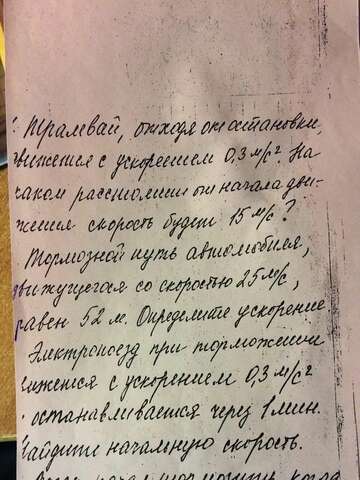 Трамвай, отходя от остановки,
движется с ускорением 0,3 м/с². На
каком расстоянии от начала дви-
жения скорость будет 15 м/с?
Тормозной путь автомобиля,
движущегося со скоростью 25 м/с,
равен 52 м. Определите ускорение
Электропоезд при торможении
движется с ускорением 0,3 м/с²
и останавливается через 1 мин.
Найдите начальную скорость.